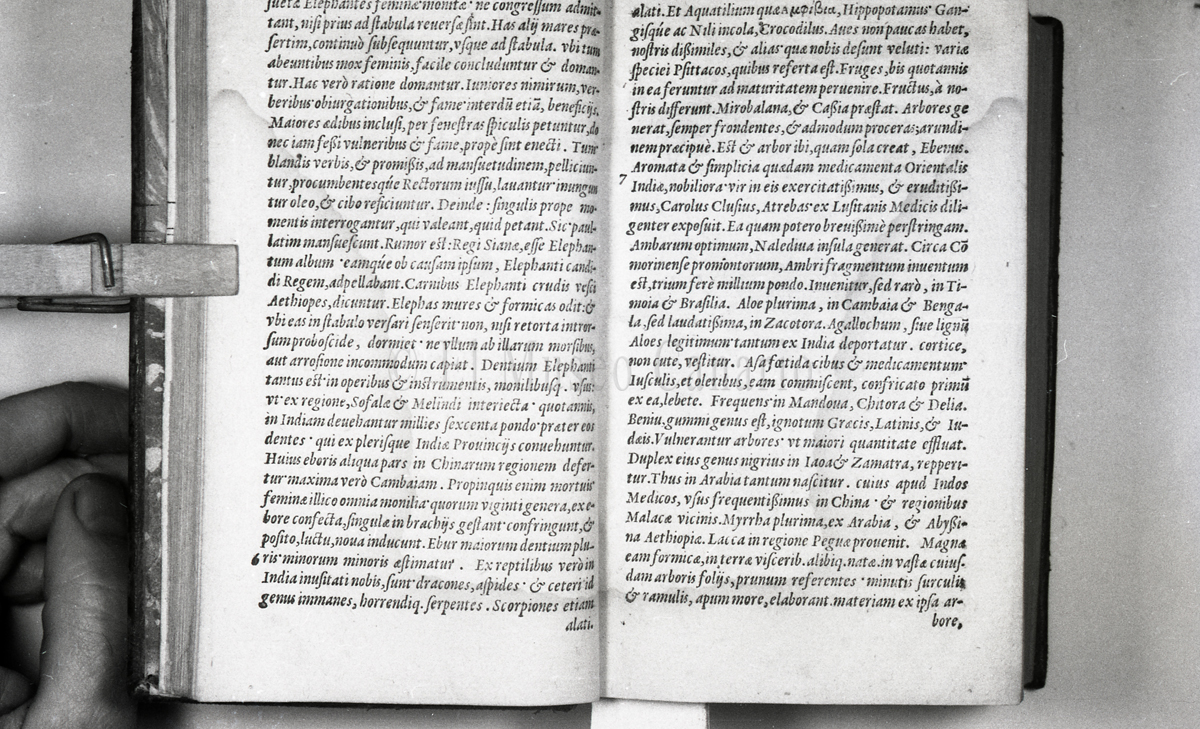 suetæ Elephantes feminæ monitæ · ne congressum admit-
tant, nisi prius ad stabula reuersæ sint. Has alij mares præ-
sertim, continuò subsequuntur, vsque ad stabula. vbi tum
abeuntibus mox feminis, facile concluduntur & doman-
tur. Hac verò ratione domantur. Iuniores nimirum, ver-
beribus obiurgationibus, & fame interdū etiā, beneficijs,
Maiores ædibus inclusi, per fenestras spiculis petuntur, do
nec iam fessi vulneribus & fame, propè sint enecti. Tunc
blandis verbis, & promißis, ad mansuetudinem, pelliciun-
tur, procumbentesque Rectorum iussu, lauantur inungun
tur oleo, & cibo reficiuntur. Deinde : singulis prope mo-
mentis interrogantur, qui valeant, quid petant. Sic paul-
latim mansuescunt. Rumor est : Regi Sianæ, esse Elephan-
tum album · eamque ob causam ipsum, Elephanti candi-
di Regem, adpellabant. Carnibus Elephanti crudis vesci
Aethiopes, dicuntur. Elephas mures & formicas odit: &
vbi eas in stabulo versari senserit non, nisi retorta intror-
sum proboscide, dormiet · ne vllum ab illarum morsibus,
aut arrosione incommodum capiat. Dentium Elephanti
tantus est in operibus & instrumentis, monilibusq. vsus:
vt ex regione, Sofalæ & Melindi interiecta · quotannis,
in Indiam deuehantur millies sexcenta pondo · præter eos
dentes · qui ex plerisque Indiæ Prouincijs conuehuntur.
Huius eboris aliqua pars in Chinarum regionem defer-
tur maxima verò Cambaiam. Propinquis enim mortuis
feminæ illico omnia monilia · quorum viginti genera, ex e-
bore confecta, singulæ in brachijs gestant · confringunt, &
posito, luctu, noua inducunt. Ebur maiorum dentium plu-
6 ris · minorum minoris æstimatur. Ex reptilibus verò in
India inusitati nobis, sunt · dracones, aspides · & ceteri id
genus immanes, horrendiq. serpentes. Scorpiones etiam
alati.
alati. Et Aquatilium quæ αμφιβια, Hippopotamus Gan-
gisque ac Nili incola, Crocodilus. Aues non paucas habet,
nostris dißimiles, & alias · quæ nobis desunt veluti: variæ
speciei Psittacos, quibus referta est. Fruges, bis quotannis
in ea feruntur ad maturitatem peruenire. Fructus, à no-
stris differunt. Mirobalana, & Caßia præstat. Arbores ge
nerat, semper frondentes, & admodum proceras; arundi-
nem præcipuè. Est & arbor ibi, quam sola creat, Ebenus.
Aromata & simplicia quædam medicamenta Orientalis
7 Indiæ, nobiliora · vir in eis exercitatißimus, & eruditißi-
mus, Carolus Clusius, Atrebas · ex Lusitanis Medicis dili-
genter exposuit. Ea quam potero breuißimè perstringam.
Ambarum optimum, Naledua insula generat. Circa Cō
morinense promontorium, Ambri fragmentum inuentum
est, trium ferè millium pondo. Inuenitur, sed rarò, in Ti-
moia & Brasilia. Aloe plurima, in Cambaia & Benga-
la, sed laudatißima, in Zacotora. Agallochum, siue lignū
Aloes legitimum tantum ex India deportatur. cortice,
non cute, vestitur. Asa fœtida cibus & medicamentum
Iusculis, et oleribus, eam commiscent, confricato primū
ex ea, lebete. Frequens in Mandoua, Chitora & Delia.
Beniu, gummi genus est, ignotum Græcis, Latinis, & Iu-
dæis. Vulnerantur arbores · vt maiori quantitate effluat.
Duplex eius genus nigrius in Iaoa & Zamatra, repperi-
tur. Thus in Arabia tantum nascitur. cuius apud Indos
Medicos, vsus frequentißimus in China · & regionibus
Malacæ vicinis. Myrrha plurima, ex Arabia, & Abyßi-
na Aethiopiæ. Lacca in regione Peguæ prouenit. Magnæ
eam formicæ, in terræ viscerib. alibiq. natæ. in vastæ cuius-
dam arboris folijs, prunum referentes · minutis surculis
& ramulis, apum more, elaborant. materiam ex ipsa ar-
bore,